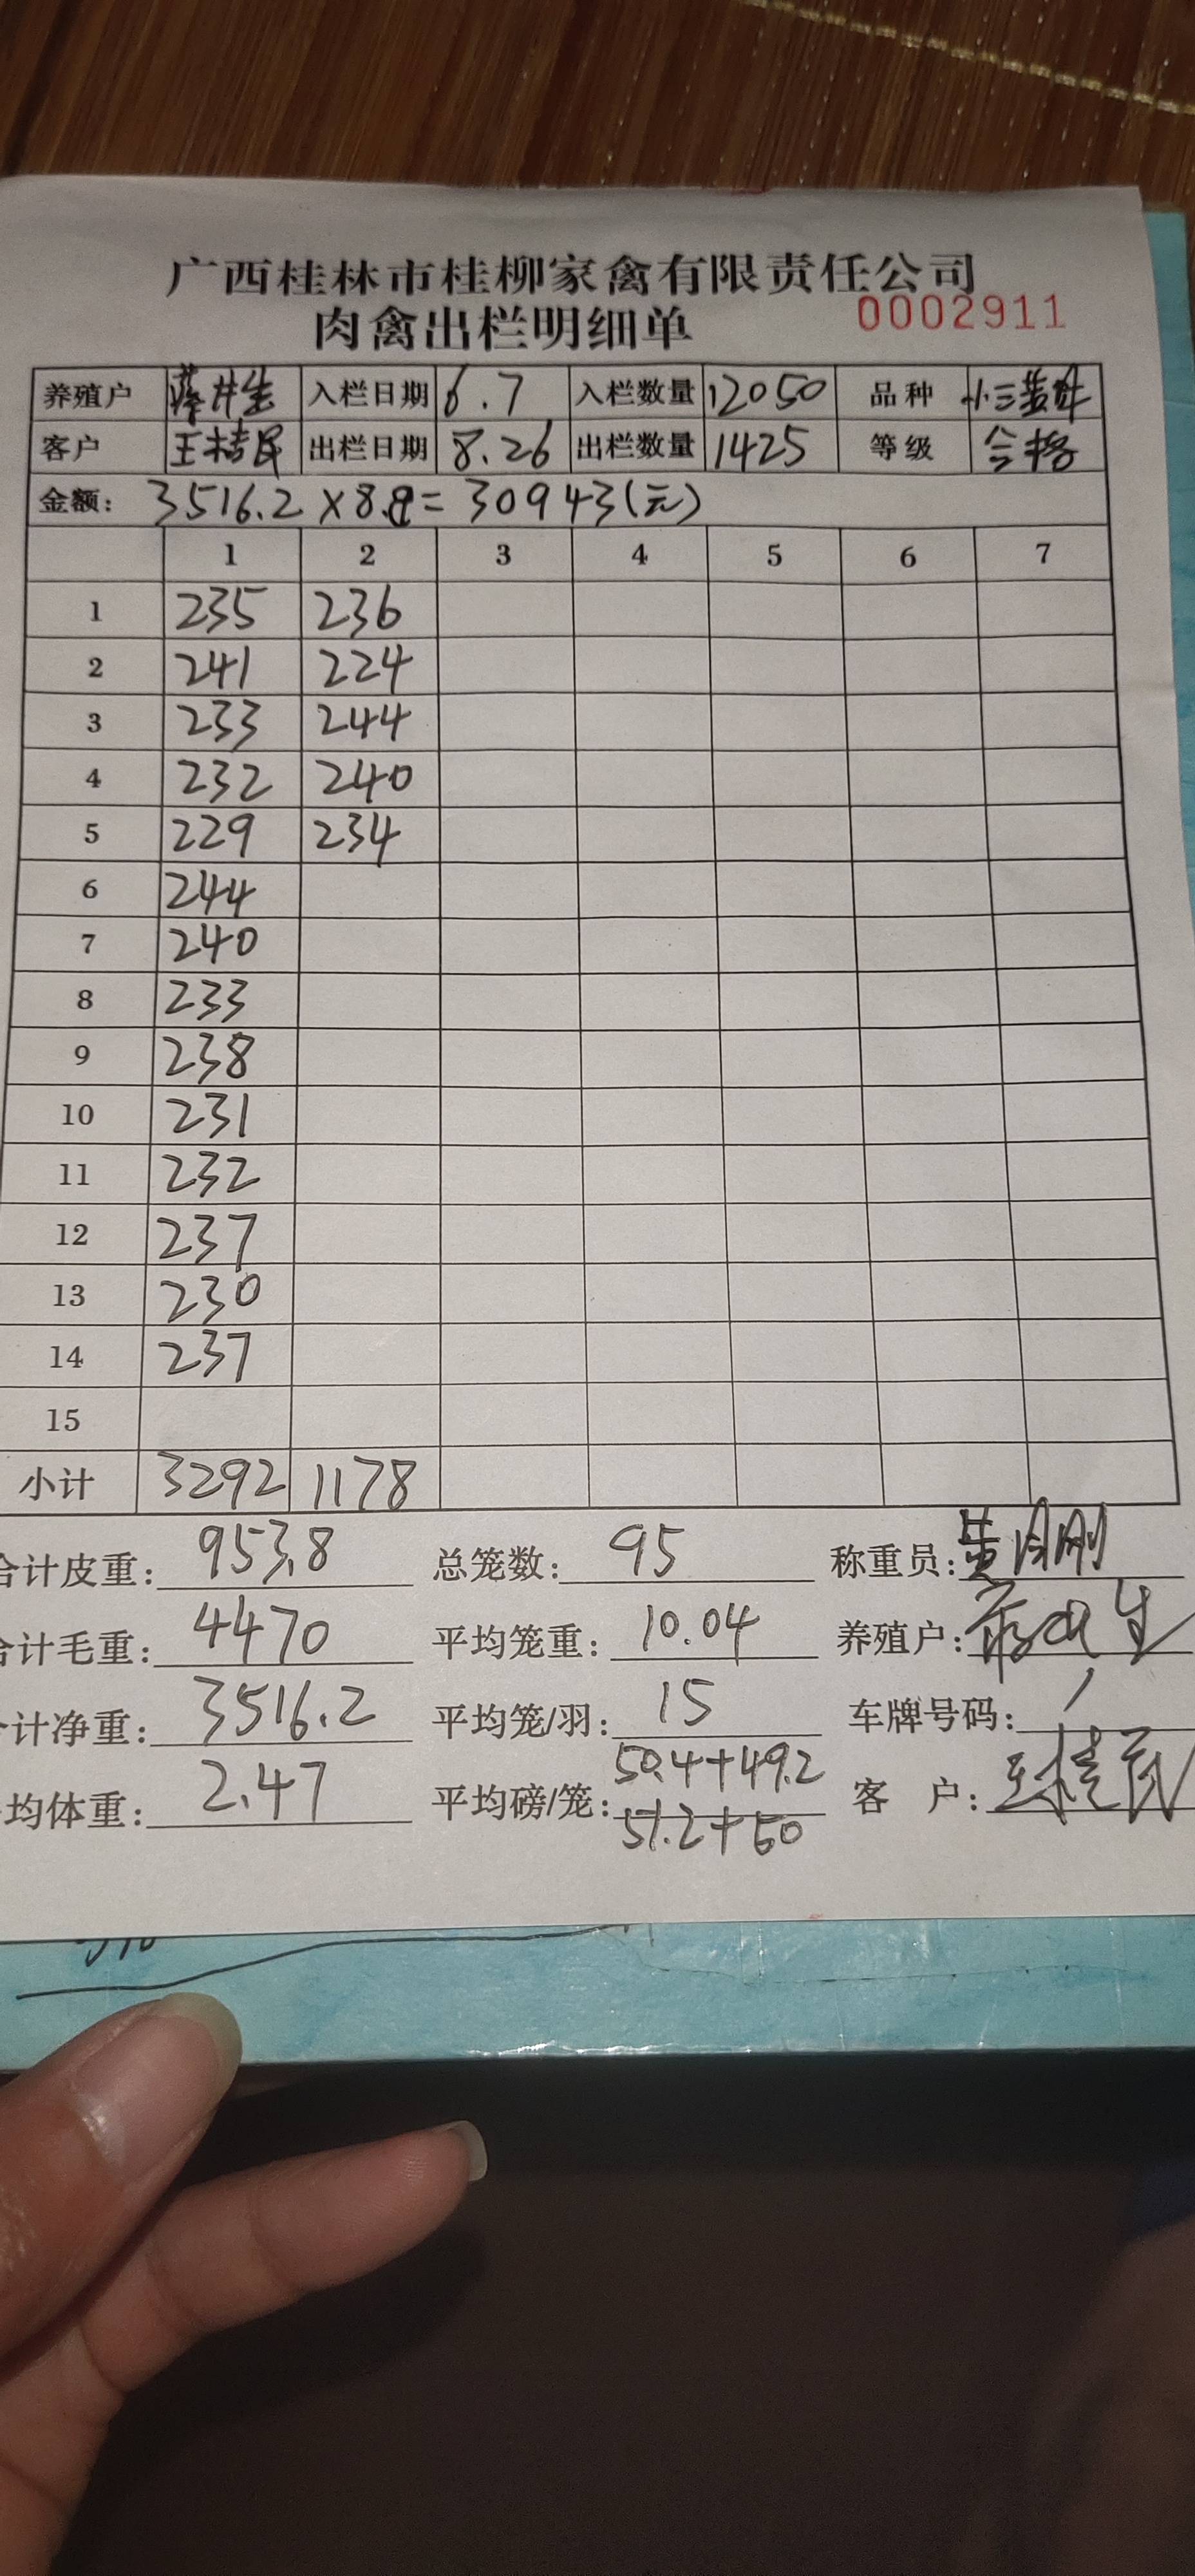 广西桂林市桂柳家禽有限责任公司
肉禽出栏明细单 0002911
养殖户 入栏日期 6.7 入栏数量 12050 品种 小三黄母
客户 王桂民 出栏日期 8.26 出栏数量 1425 等级 合格
金额: 3516.2×8.8=30943(元)
1 2 3 4 5 6 7
1 235 236
2 241 224
3 233 244
4 232 240
5 229 234
6 244
7 240
8 233
9 238
10 231
11 232
12 237
13 230
14 237
15
小计 3292 1178
合计皮重: 953.8 总笼数: 95 称重员:
合计毛重: 4470 平均笼重: 10.04 养殖户:
计净重: 3516.2 平均笼/羽: 15 车牌号码: /
均体重: 2.47 平均磅/笼: 50.4+49.2 客 户: 王桂民
51.2+50